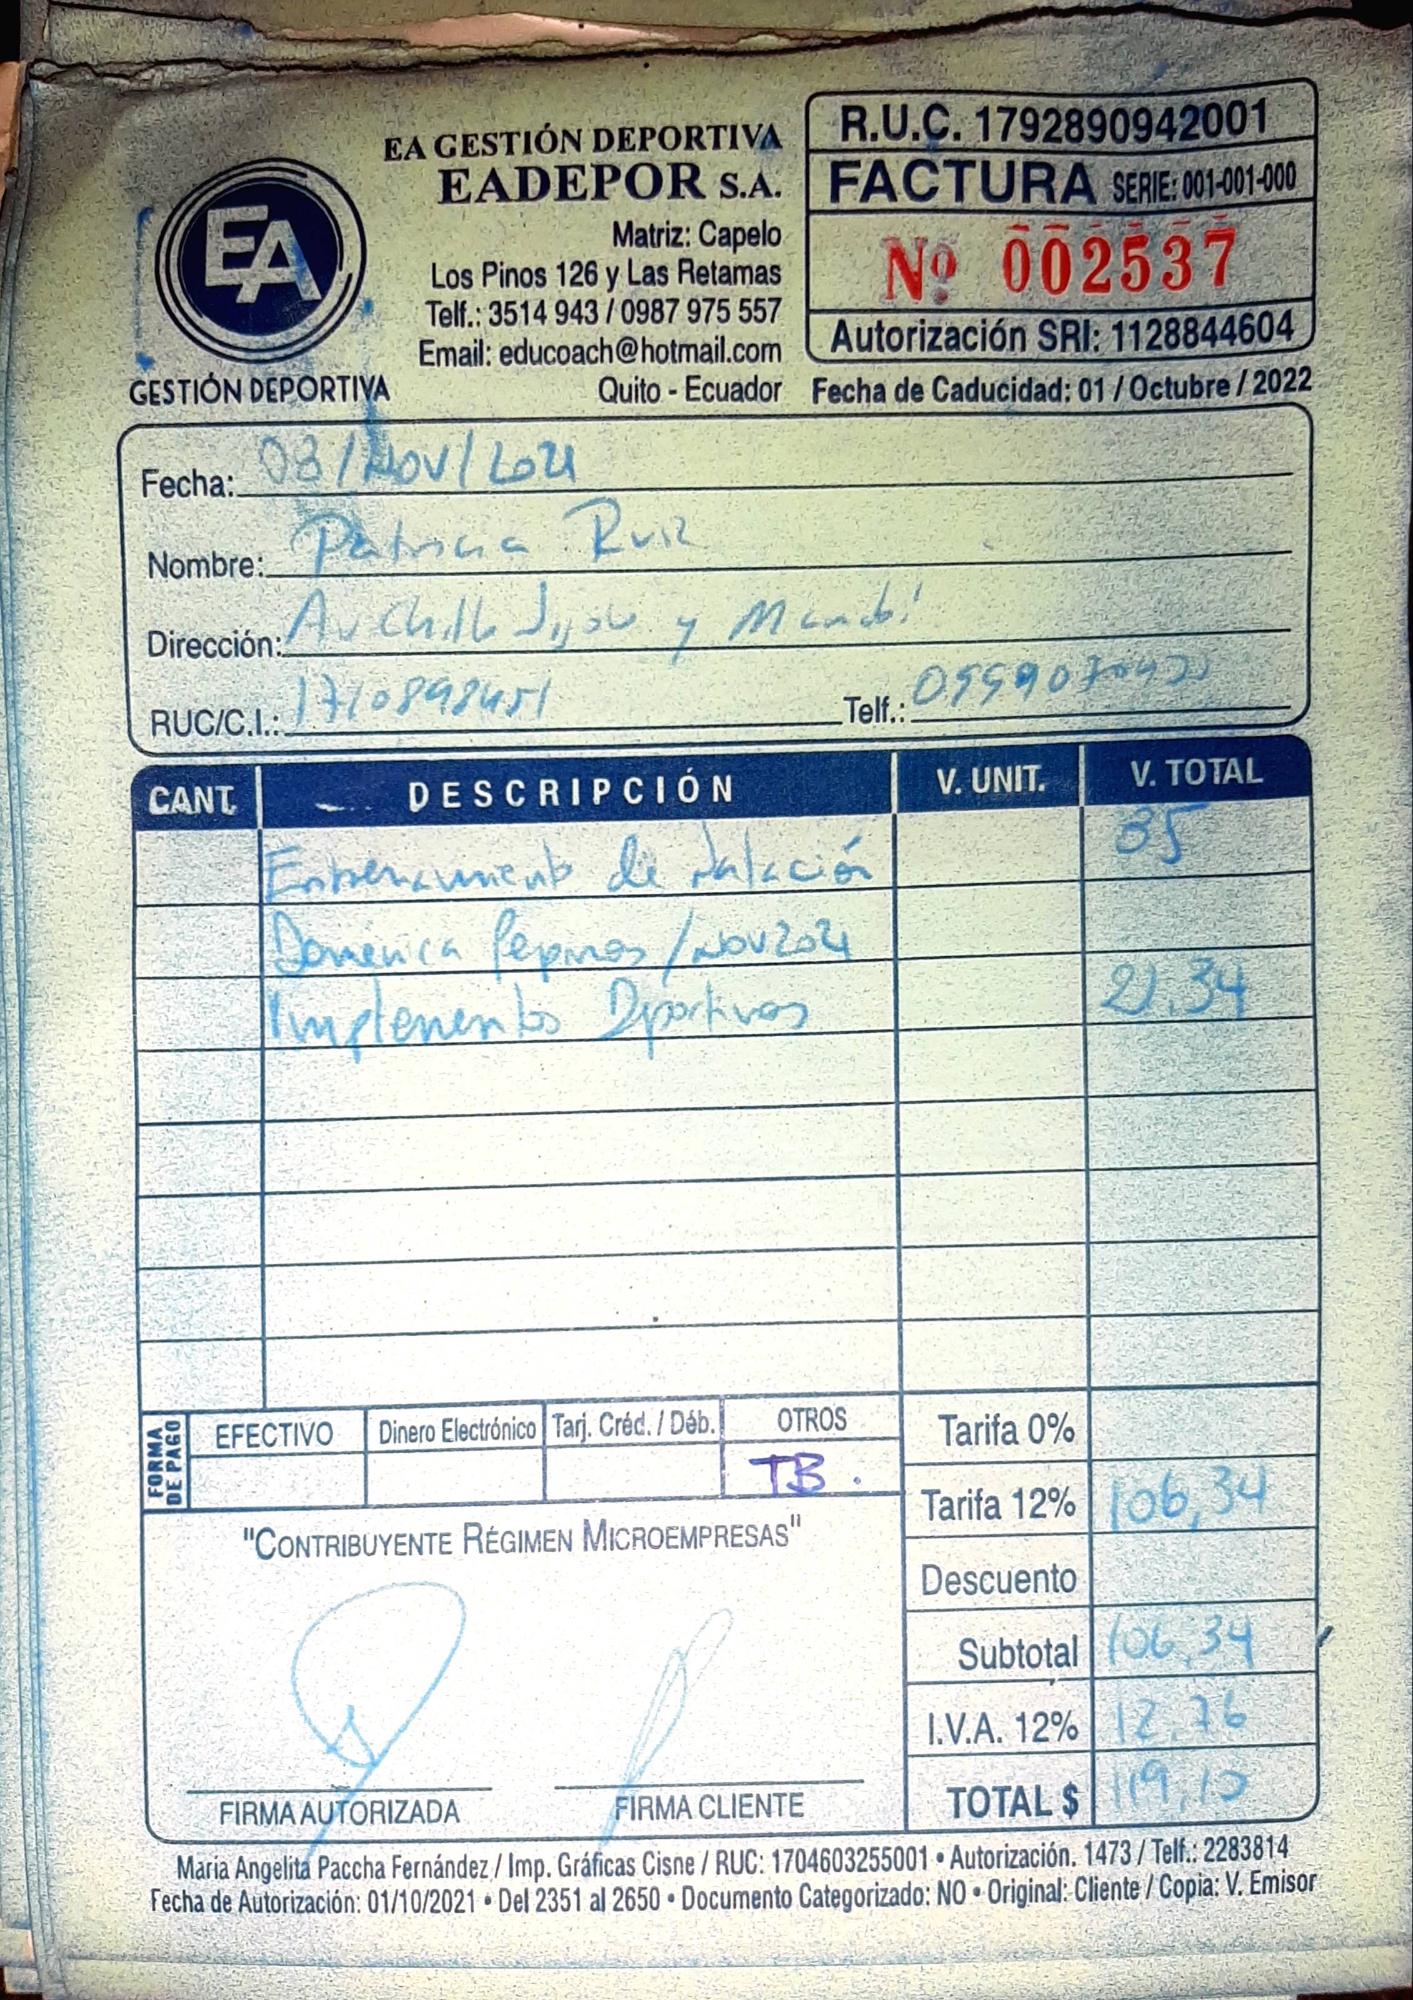 EA
GESTIÓN DEPORTIVA
EA GESTIÓN DEPORTIVA
EADEPOR S.A.
Matriz: Capelo
Los Pinos 126 y Las Retamas
Telf.: 3514 943 / 0987 975 557
Email: educoach@hotmail.com
Quito - Ecuador
R.U.C. 1792890942001
FACTURA SERIE: 001-001-000
Nº 002537
Autorización SRI: 1128844604
Fecha de Caducidad: 01 / Octubre / 2022
Fecha: 03/Nov/2021
Nombre: Patricia Ruiz
Dirección: Av y Manabí
RUC/C.I.: 1710898451 Telf.:
CANT. DESCRIPCIÓN V. UNIT. V. TOTAL
Entrenamiento de Natación 85
Doménica /Nov 2021
Implementos Deportivos 21.34
FORMA DE PAGO
EFECTIVO Dinero Electrónico Tarj. Créd. / Déb. OTROS
TB.
Tarifa 0%
Tarifa 12% 106,34
Descuento
Subtotal 106,34
I.V.A. 12% 12,76
TOTAL $ 119,10
"CONTRIBUYENTE RÉGIMEN MICROEMPRESAS"
FIRMA AUTORIZADA FIRMA CLIENTE
María Angelita Paccha Fernández / Imp. Gráficas Cisne / RUC: 1704603255001 • Autorización. 1473 / Telf.: 2283814
Fecha de Autorización: 01/10/2021 • Del 2351 al 2650 • Documento Categorizado: NO • Original: Cliente / Copia: V. Emisor